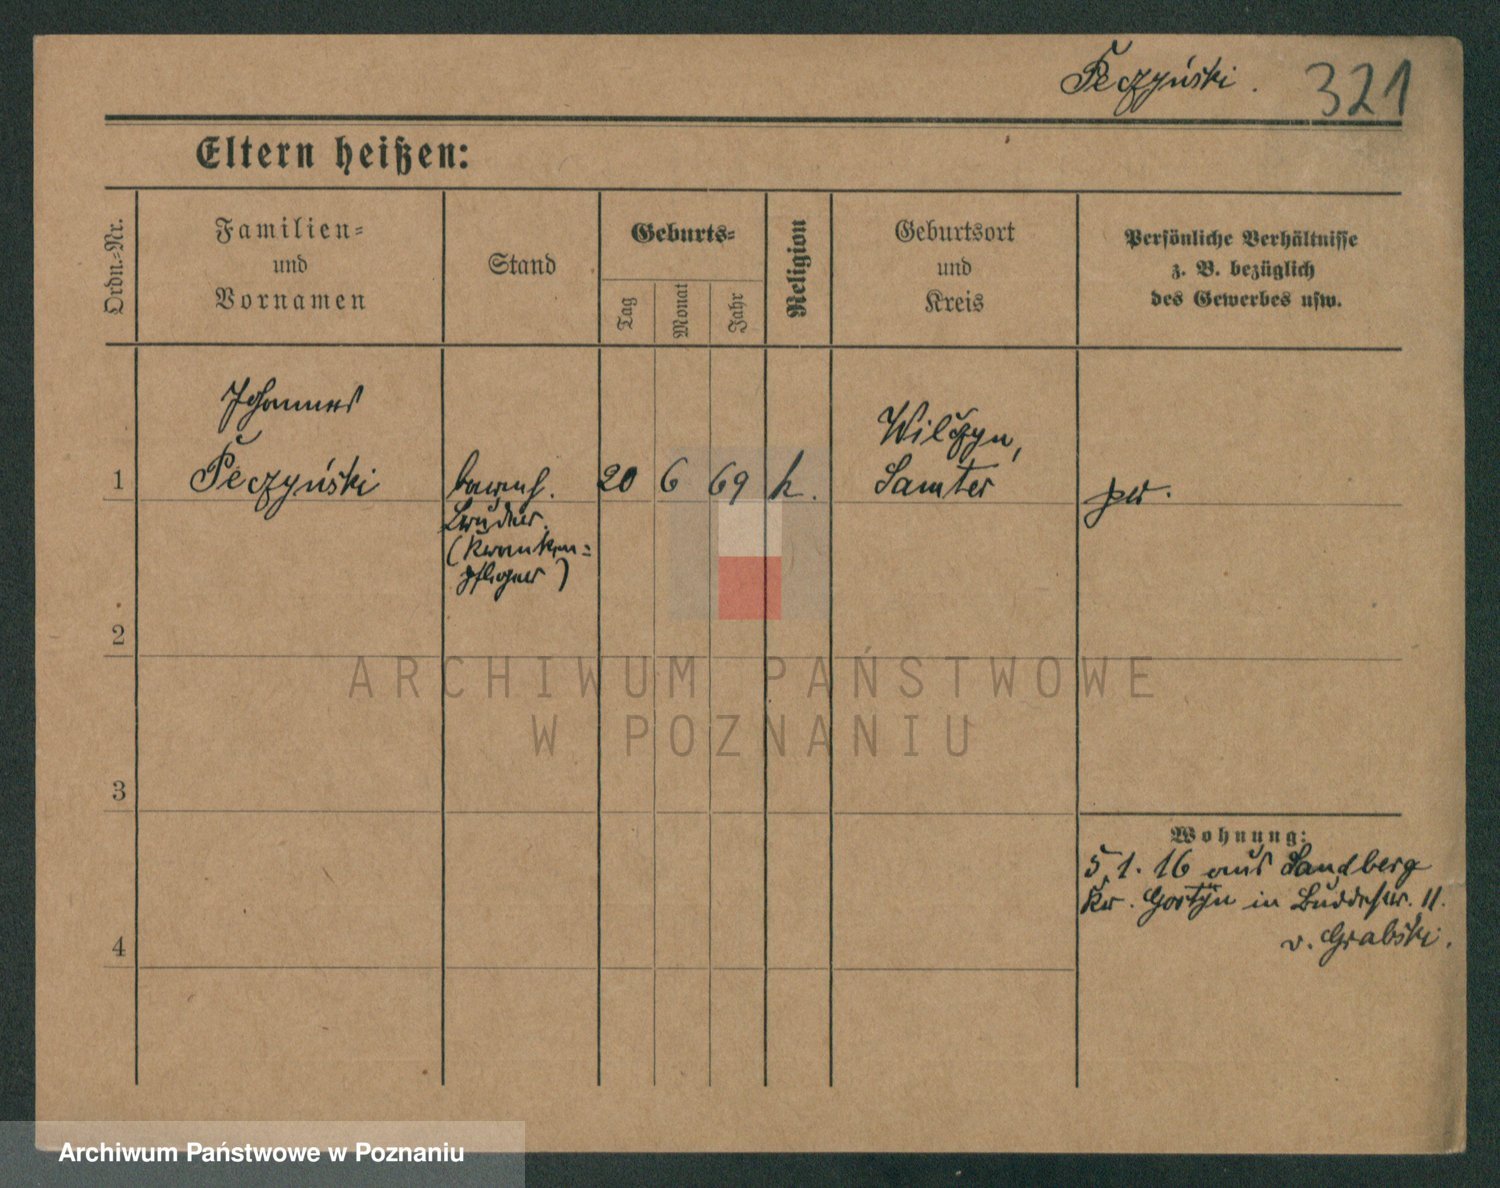 Peczyński. 321
Eltern heißen:
Ordn.-Nr.
Familien-
und
Vornamen
Stand
Geburts-
Tag
Monat
Jahr
Religion
Geburtsort
und
Kreis
Persönliche Verhältnisse
z. B. bezüglich
des Gewerbes usw.
Johannes
Peczyński
1
barmh.
Bruder.
(Kranken-
pfleger)
20 6 69 k.
Wilczyn,
Samter
2
3
4
Wohnung:
5.1.16 aus Sandberg
Kr. Gostyn in Buddestr. 11.
v. Grabski.
ARCHIWUM PAŃSTWOWE
W POZNANIU
Archiwum Państwowe w Poznaniu